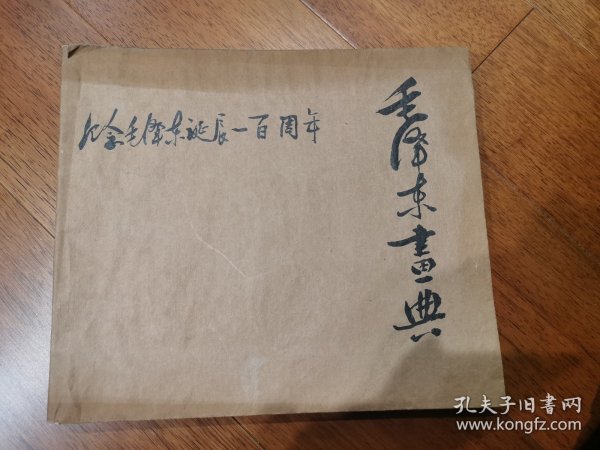 纪念毛泽东诞辰一百周年
毛泽东畫典
孔夫子旧書网
www.kongfz.com